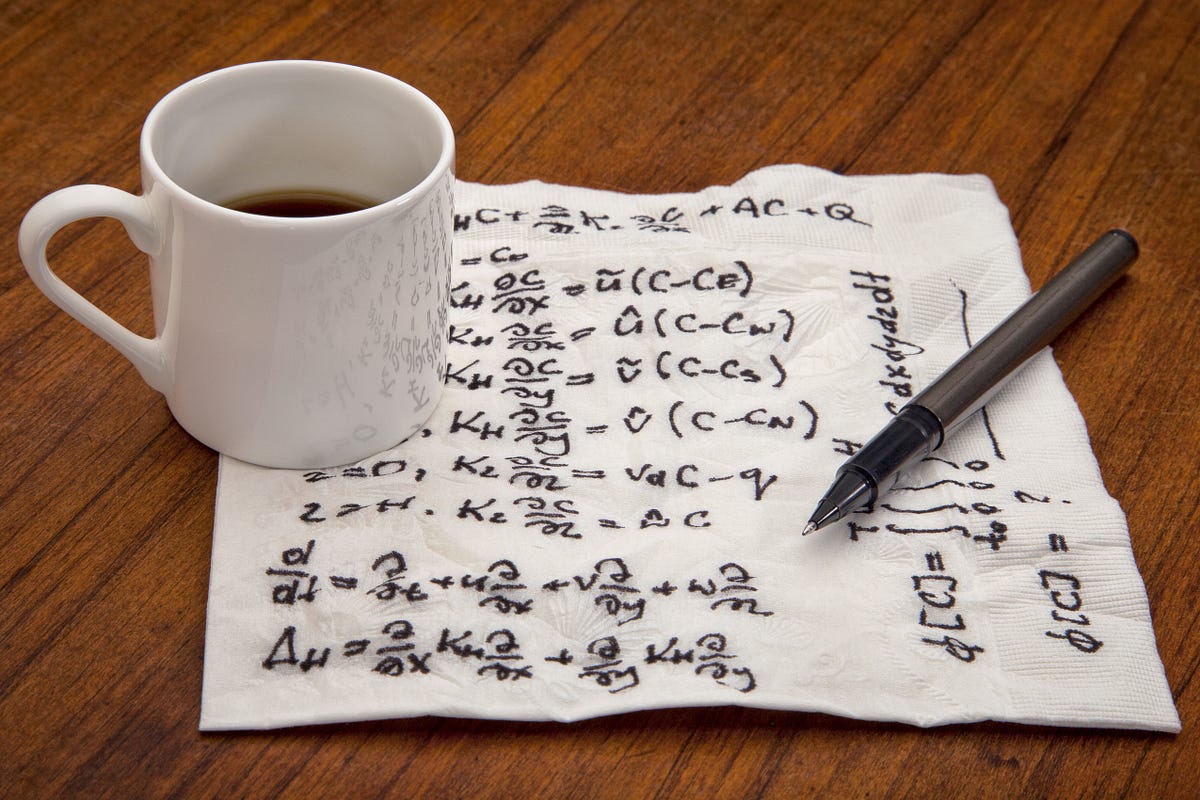 HC + ∂/∂z Kz ∂C/∂z + AC + Q
= C₀
KH ∂C/∂x = ũ (C-CE)
KH ∂C/∂x = û (C-CW)
KH ∂C/∂y = ṽ (C-CS)
, KH ∂C/∂y = v̂ (C-CN)
z=0, Kz ∂C/∂z = vdC - q
z=H, Kz ∂C/∂z = C
d/dt = ∂/∂t + u ∂/∂x + v ∂/∂y + w ∂/∂z
ΔH = ∂/∂x KH ∂/∂x + ∂/∂y KH ∂/∂y
ϕ[C] = ∫∫∫ dxdydzdt
T H
t₀ 0 0
ϕ[C] = ?